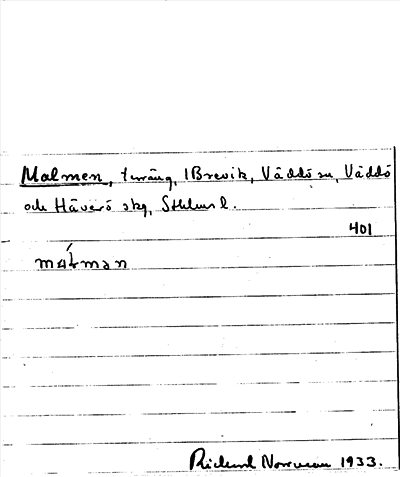 Malmen, terräng, 1 Brevik, Väddö sn, Väddö
och Häverö skg, Sthlms l.
401
maĺmən
Rickard Norrman 1933.